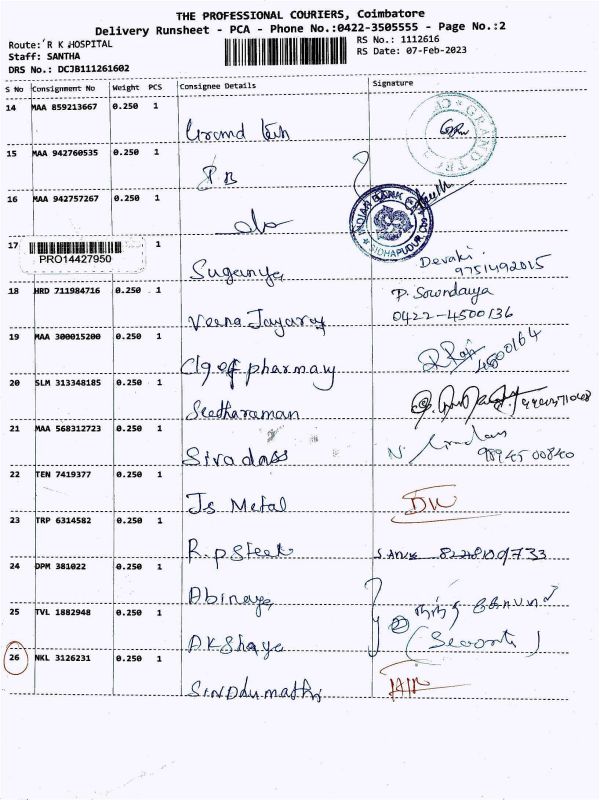 THE PROFESSIONAL COURIERS, Coimbatore
Delivery Runsheet - PCA - Phone No.:0422-3505555 - Page No.:2
Route: R K HOSPITAL
Staff: SANTHA
DRS No.: DCJB111261602
RS No.: 1112616
RS Date: 07-Feb-2023
S No Consignment No Weight PCS Consignee Details Signature
14 MAA 859213667 0.250 1
Grand
GRAND
15 MAA 942760535 0.250 1
IB
16 MAA 942757267 0.250 1
do
INDIAN BANK
SIDHAPUDUR
17 PRO14427950 1
Suganya Devaki
9751492015
18 HRD 711984716 0.250 1
Veena Jayaraj P. Soundarya
0422-4500136
19 MAA 300015200 0.250 1
Clg of pharmacy 4500164
20 SLM 313348185 0.250 1
Seetharaman
21 MAA 568312723 0.250 1
Sivadass N.
9894500840
22 TEN 7419377 0.250 1
Js Metal
23 TRP 6314582 0.250 1
R.p Steel
24 DPM 381022 0.250 1
Abinaya
25 TVL 1882948 0.250 1
Akshaya
26 NKL 3126231 0.250 1